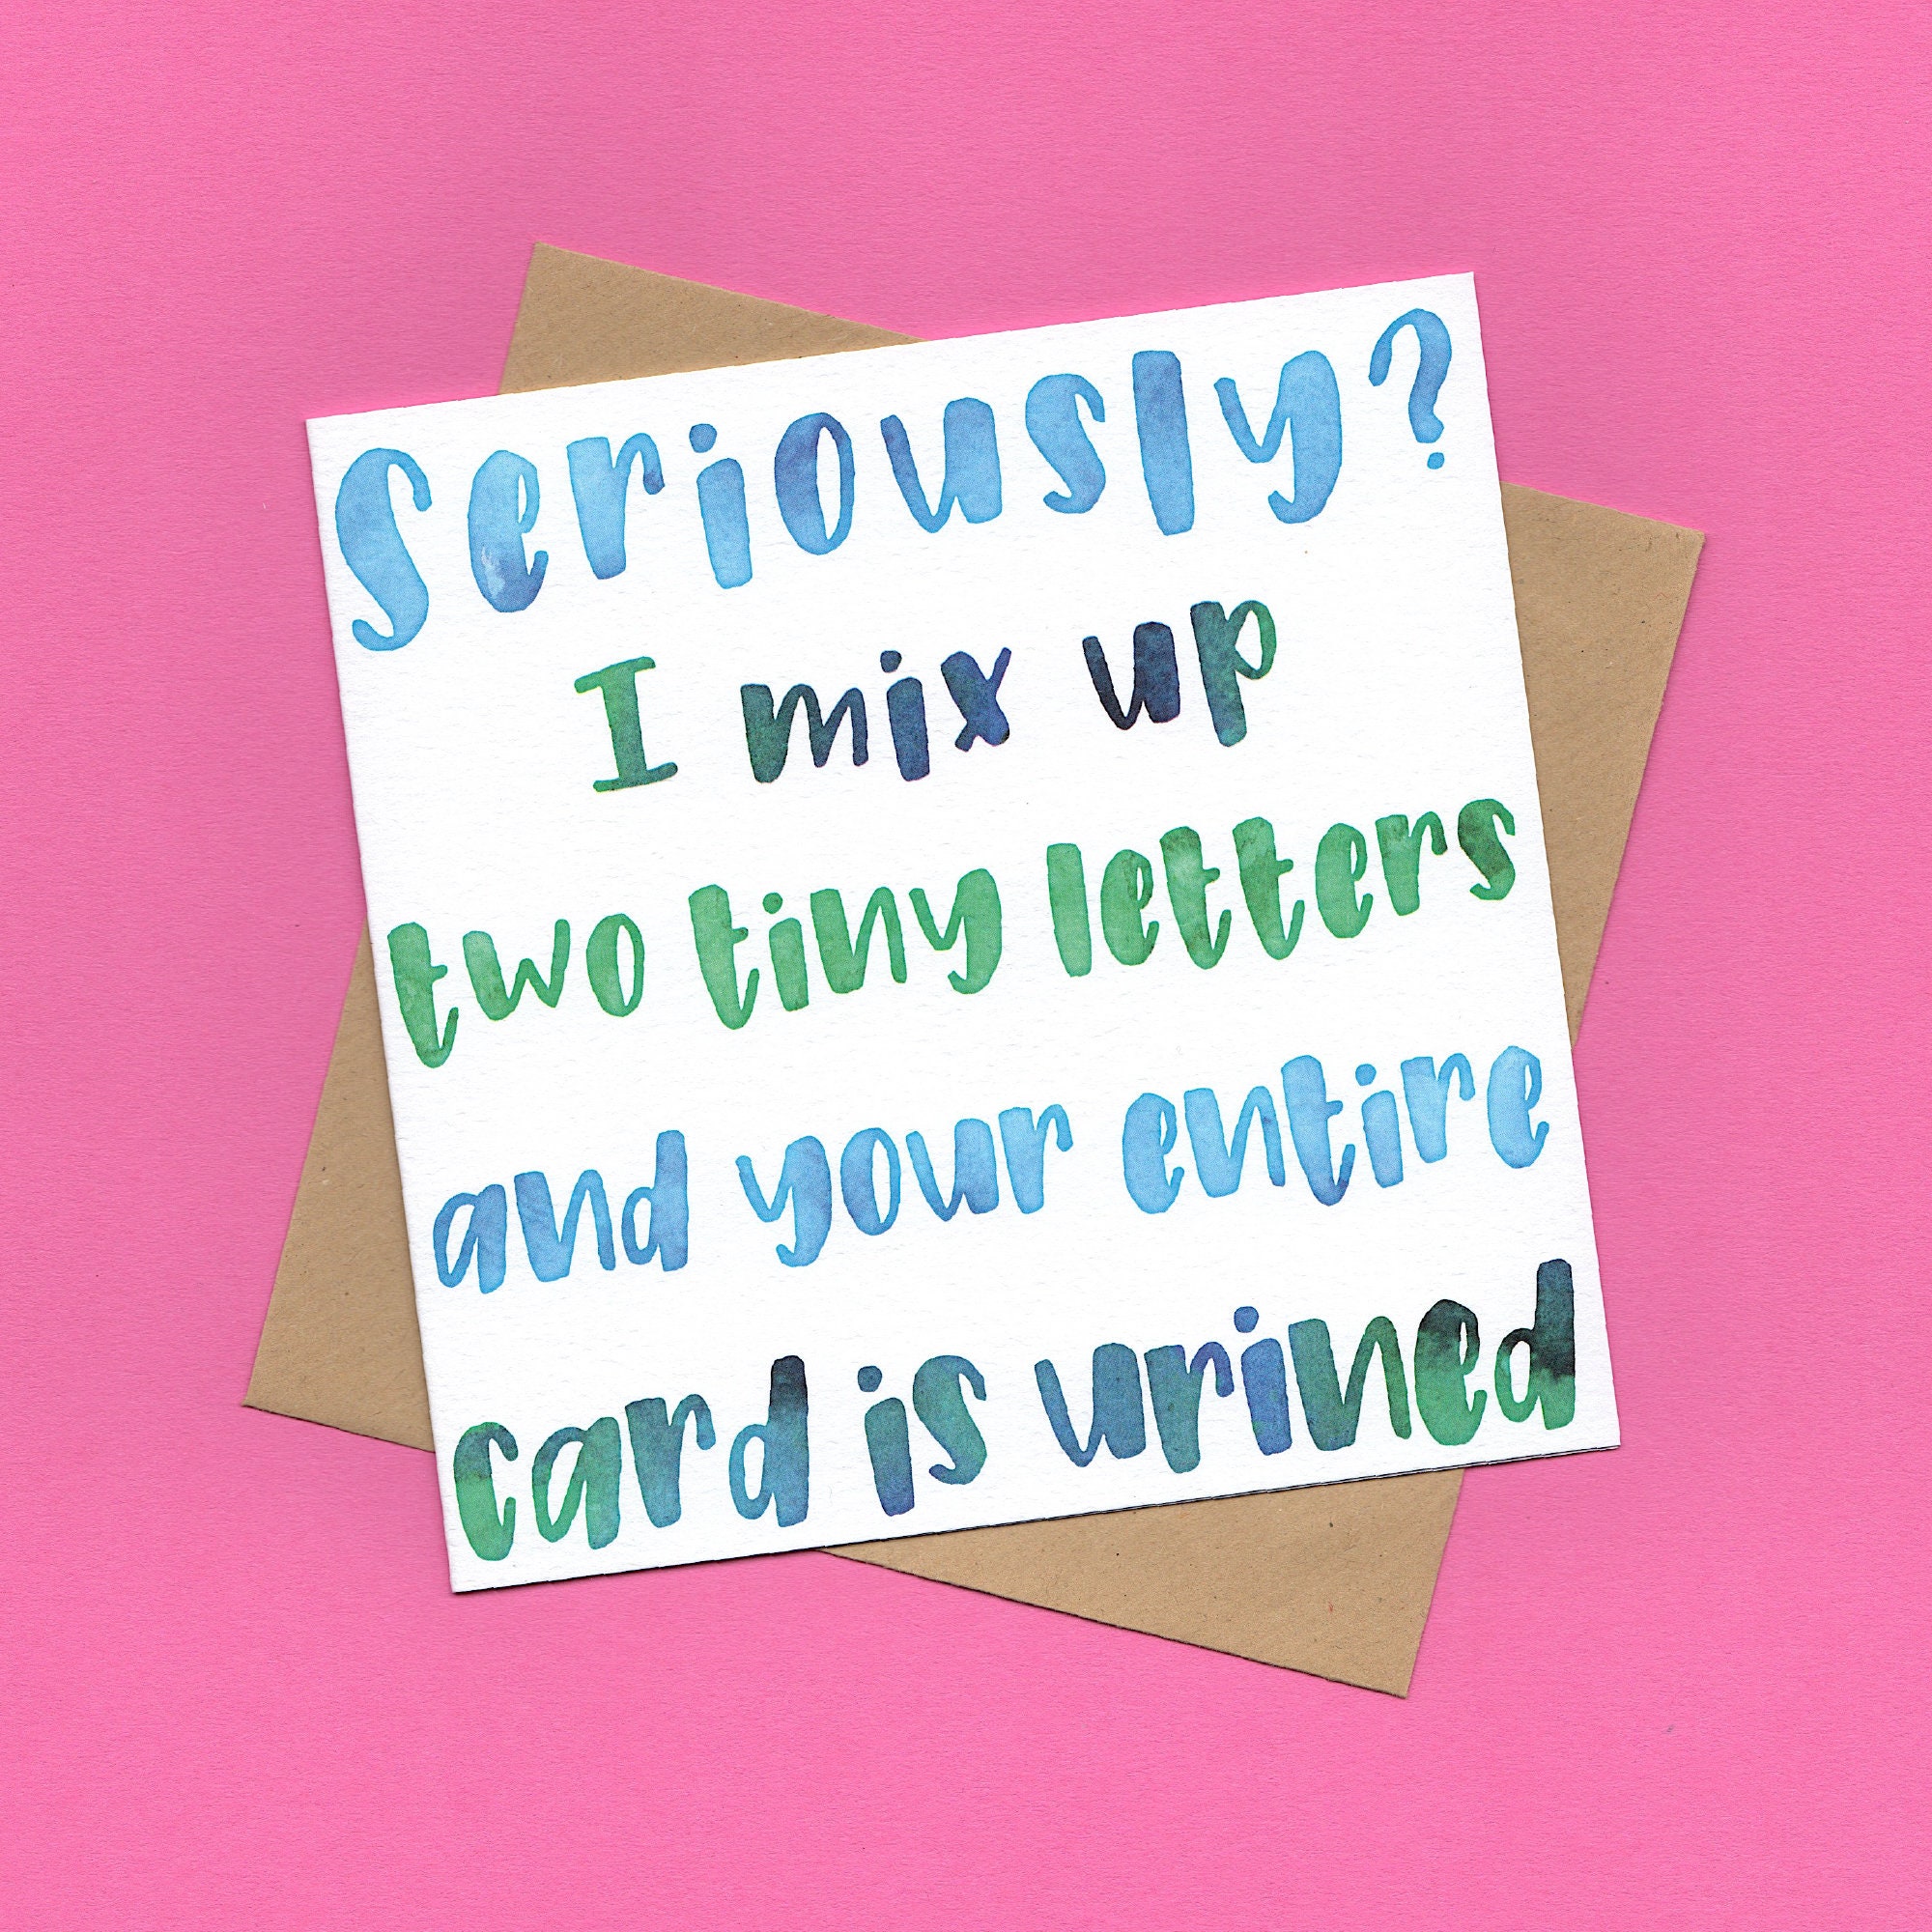 Seriously?
I mix up
two tiny letters
and your entire
card is urined